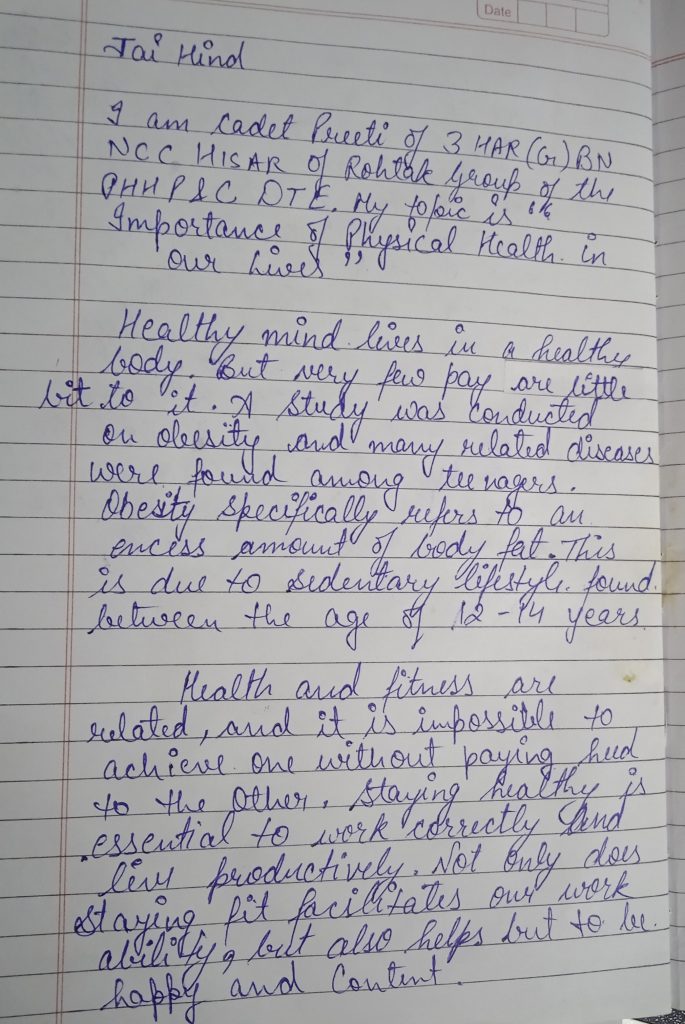 Date
Jai Hind
I am Cadet Preeti of 3 HAR (G) BN
NCC HISAR of Rohtak Group of the
PHHP&C DTE. My topic is "
Importance of Physical Health in
our Lives"
Healthy mind lives in a healthy
body. But very few pay are little
bit to it. A Study was conducted
on obesity and many related diseases
were found among teenagers.
Obesity specifically refers to an
encess amount of body fat. This
is due to sedentary lifestyle found
between the age of 12-14 years
Health and fitness are
related, and it is impossible to
achieve one without paying heed
to the other. Staying healthy is
essential to work correctly and
live productively. Not only does
staying fit facilitates our work
ability, but also helps but to be
happy and content.